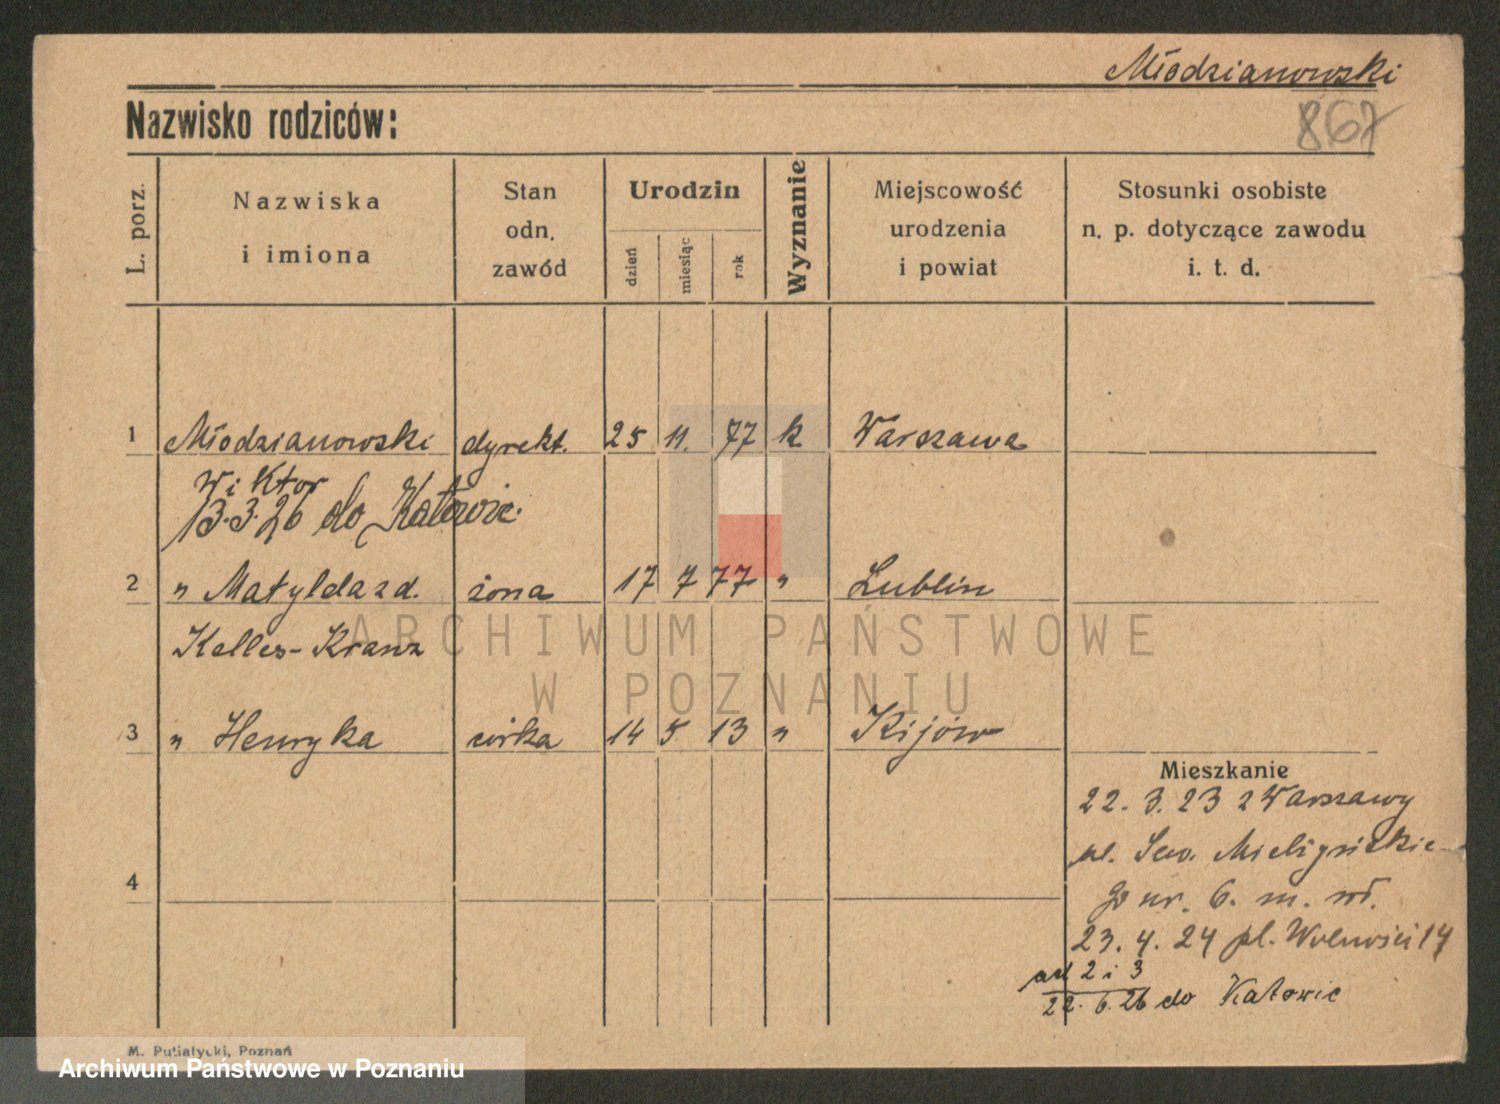 Młodzianowski
Nazwisko rodziców:
867
L. porz.
Nazwiska
i imiona
Stan
odn.
zawód
Urodzin
dzień
miesiąc
rok
Wyznanie
Miejscowość
urodzenia
i powiat
Stosunki osobiste
n. p. dotyczące zawodu
i. t. d.
1 Młodzianowski dyrekt. 25 11. 77 k Warszawa
Wiktor
13.3.26 do Katowic.
2 " Matylda z d. żona 17 7 77 " Lublin
Kelles-Kranz
ARCHIWUM PAŃSTWOWE
W POZNANIU
3 " Henryka córka 14 5 13 " Kijów
Mieszkanie
22. 3. 23 z Warszawy
ul. Sew. Mielżyńskie
go nr. 6. m. wł.
4
23. 4. 24 pl. Wolności 14
ad 2 i 3
22. 6. 26 do Katowic
M. Putiatycki, Poznań
Archiwum Państwowe w Poznaniu